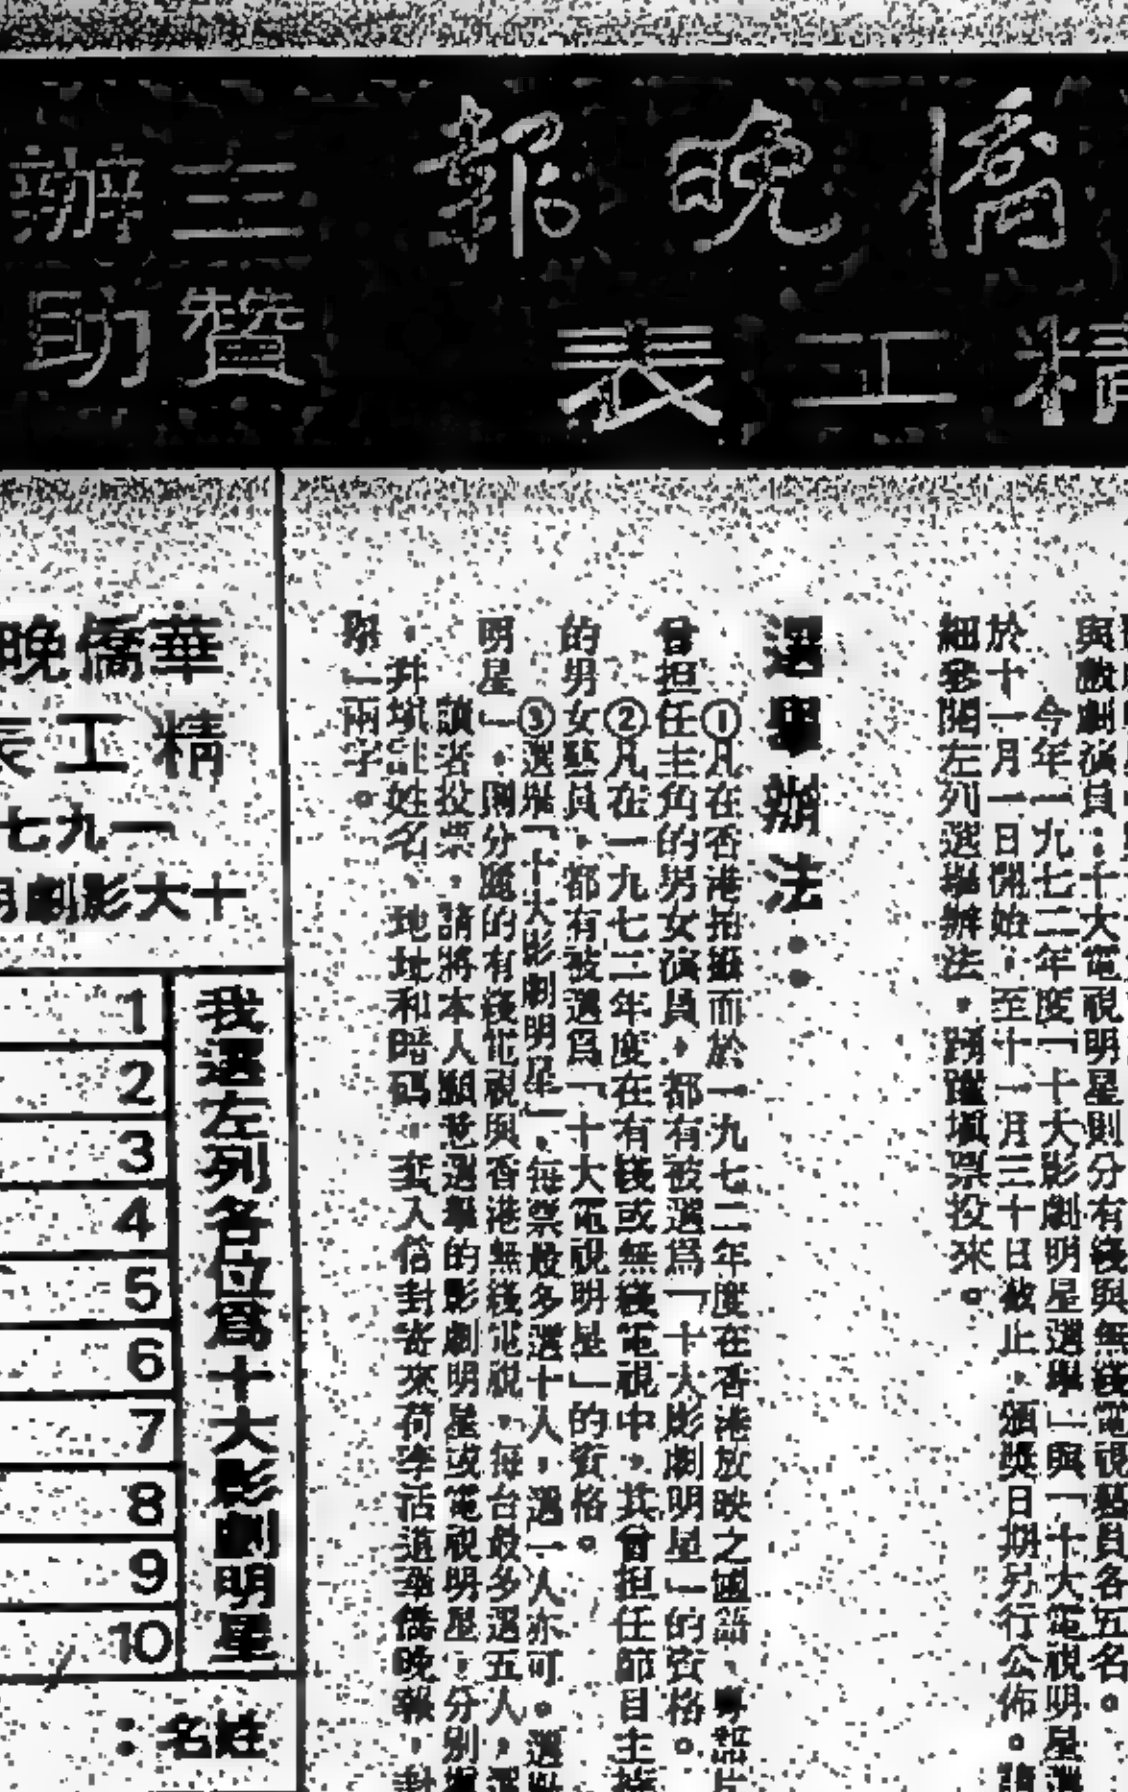 僑晚報 主辦
精工表 贊助
與數劇演員。十大電視明星則分有綫與無綫電視藝員各五名。
今年一九七二年度「十大影劇明星選舉」與「十大電視明星選
於十一月一日開始，至十一月三十日截止，頒獎日期另行公佈。請
細參閱左列選舉辦法，踴躍塡票投來。
選舉辦法：
①凡在香港拍攝而於一九七二年度在香港放映之國語、粵語片
曾担任主角的男女演員，都有被選爲「十大影劇明星」的資格。
②凡在一九七二年度在有綫或無綫電視中，其曾担任節目主持
的男女藝員，都有被選爲「十大電視明星」的資格。
③選舉「十大影劇明星」，每票最多選十人，選一人亦可。選舉
明星」，則分題的有綫電視與香港無綫電視，每台最多選五人，選
讀者投票，請將本人願意選舉的影劇明星或電視明星，分別塡
，幷塡註姓名、地址和暗碼，套入信封寄來荷李活道華僑晚報，封
舉」兩字。
華僑晚
精工表
一九七
十大影劇明
我選左列各位爲十大影劇明星
1
2
3
4
5
6
7
8
9
10
姓名：